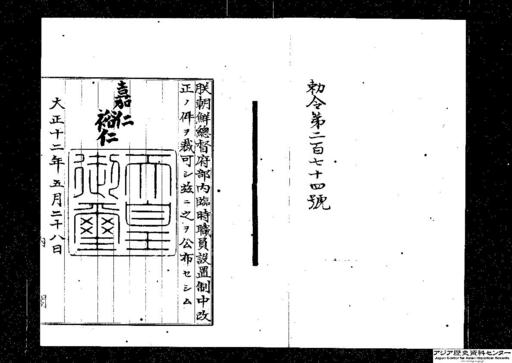 勅令第二百七十四號
朕朝鮮總督府部內臨時職員設置制中改
正ノ件ヲ裁可シ玆ニ之ヲ公布セシム
嘉仁
裕仁
天皇
御璽
大正十二年五月二十八日
アジア歴史資料センター
Japan Center for Asian Historical Records